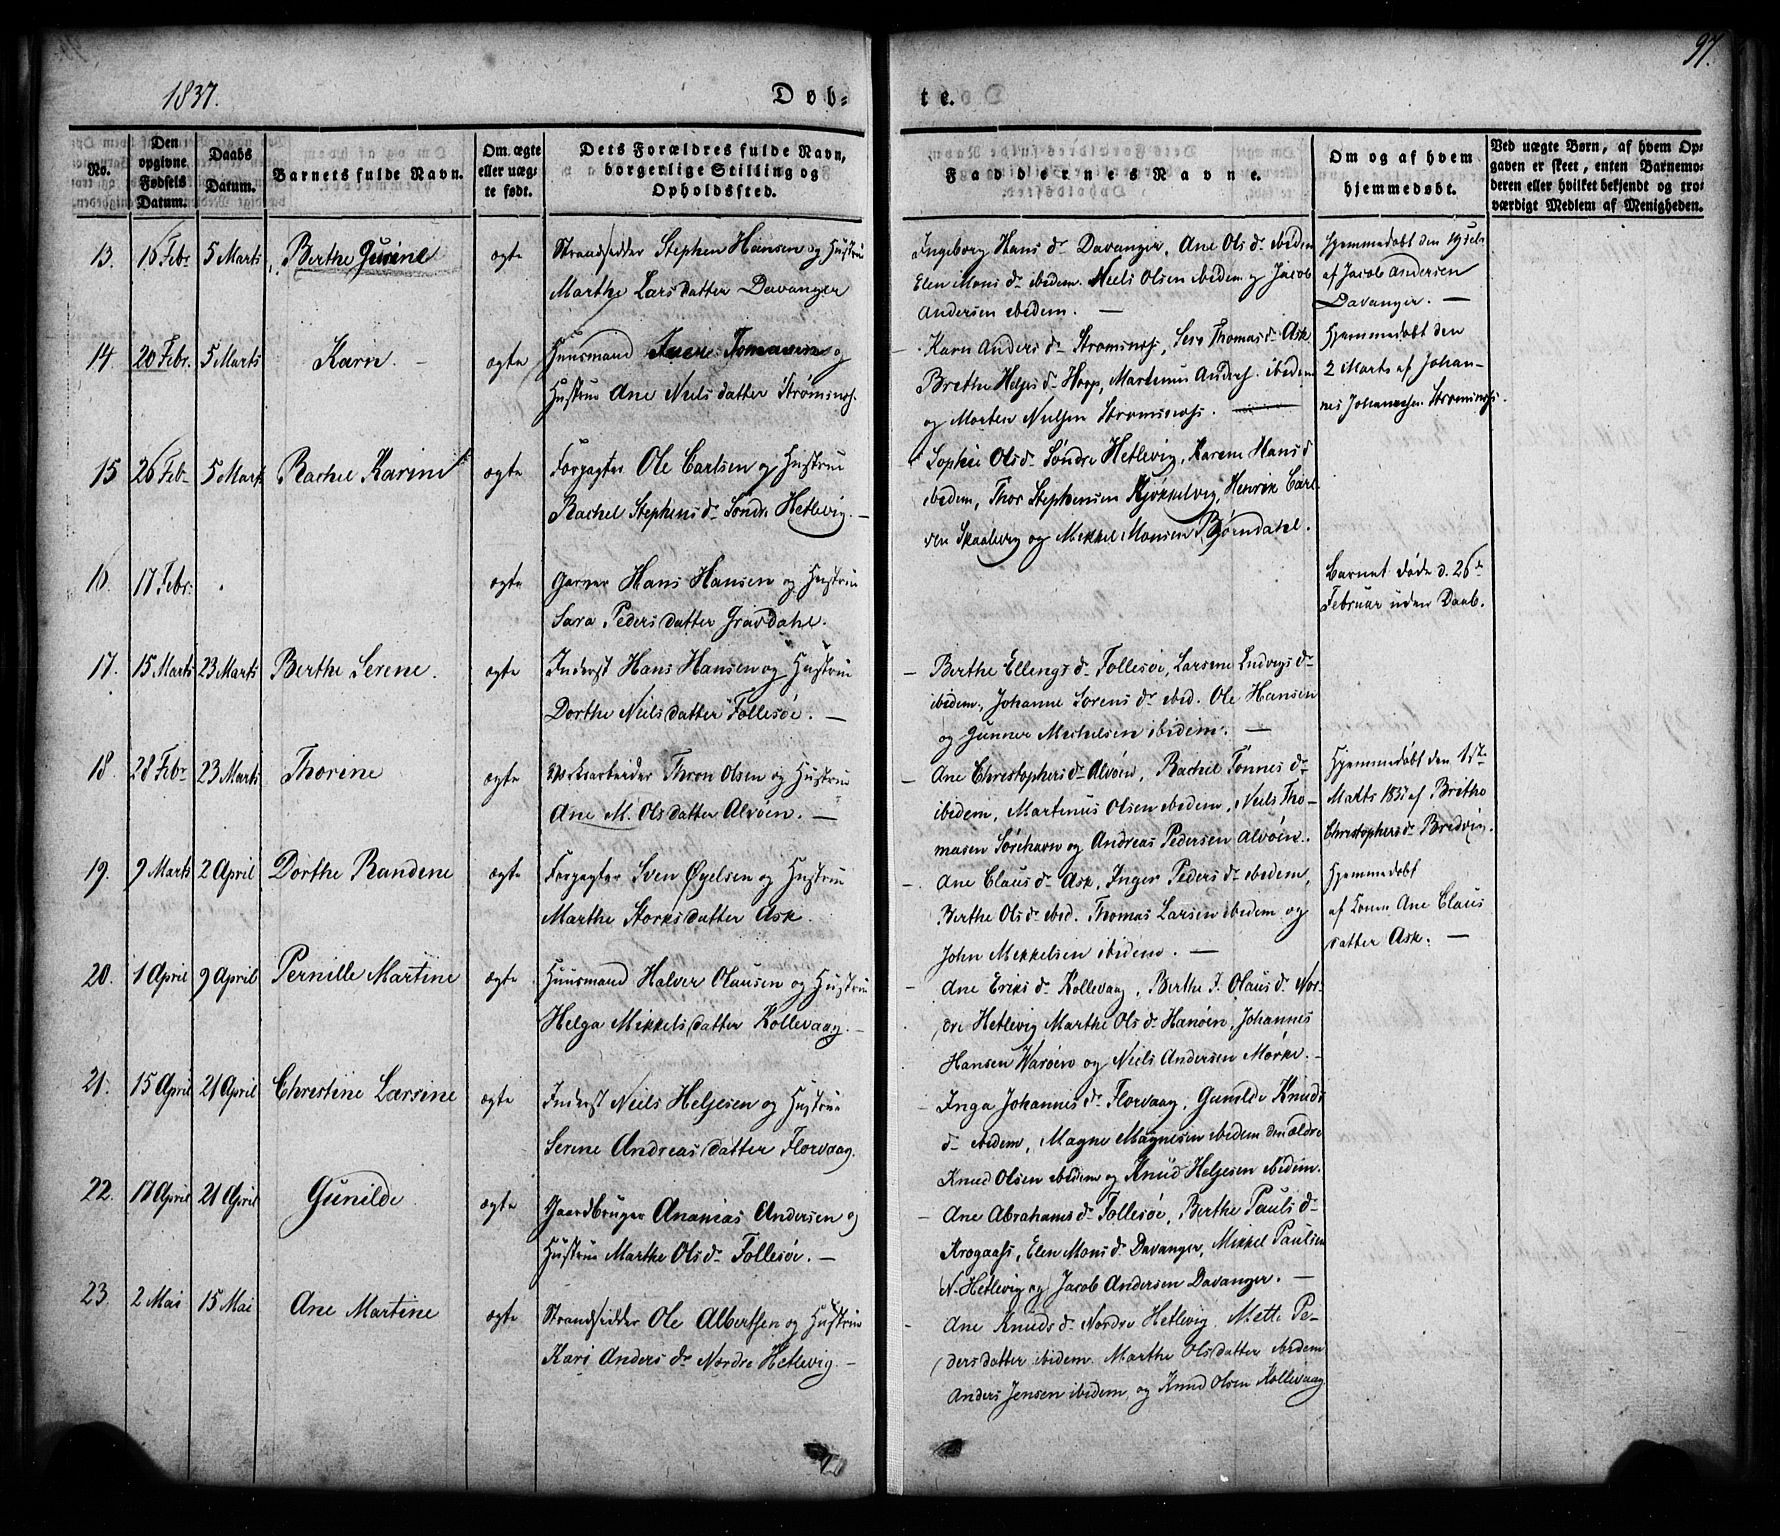 1837. Døb- te. 97.
No.
Den opgivne Fødsels Datum.
Daabs Datum.
Barnets fulde Navn.
Om ægte eller uægte født.
Dets Forældres fulde Navn, borgerlige Stilling og Opholdssted.
Faddernes Navne.
Om og af hvem hjemmedøbt.
Ved uægte Børn, af hvem Opgaven er skeet, enten Barnemoderen eller hvilket bekjendt og troværdigt Medlem af Menigheden.
13. 16 Febr 5 Marts Berthe Gurine ægte
Strandsidder Stephen Hansen og Hustrue
Marthe Larsdatter Davanger
Ingeborg Hans dr Davanger, Ane Ols dr ibidem
Elen Mons dr ibidem. Niels Olsen ibidem og Jacob
Andersen ibidem. —
Hjemmedøbt den 19
af Jacob Andersen
Davanger. —
14. 20 Febr. 5 Marts Karn. ægte
Huusmand og
Hustrue Ane Nielsdatter Strømsnæs.
Karn Anders dr Strømsnæs, Thomas d. Ask
Brethe Helges dr Hoop, Martinus Anders. ibidem
og Morten Nielsen Strømsnæs.
Hjemmedøbt den
2 Marts af Johan-
nes Johannesen Strømsnæs.
15 26 Feb 5 Marts Rachel Karine ægte
Forpagter Ole Carlsen og Hustrue
Rachel Stephens dr Søndre Hetlevig. —
Sophie Ols d. Søndre Hetlevig, Karen Hans d
ibidem, Thor Stephensen Kjøkkelvig, Henrik Carl-
sen Skaalevig og Mikkel Monsen Bjørndahl.
16. 17 Febr. ægte
Garver Hans Hansen og Hustrue
Sara Pedersdatter Gravdahl.
Barnet døde d. 26de
Februar uden Daab.
17. 15 Marts 23 Marts Berthe Serene. ægte
Inderst Hans Hansen og Hustrue
Dorthe Nielsdatter Follesøe. —
Berthe Ellings dr Follesøe, Larsene Ludvigs dr
ibidem, Johanne Sørens dr ibid. Ole Hansen
og Gunner Michelsen ibidem. —
18. 28 Febr 23 Marts Thorine ægte
Thron Olsen og Hustrue
Ane M. Olsdatter Alvøen. —
Ane Christophers dr Alvøen, Rachel Tønnes dr
ibidem, Martinus Olsen ibidem, Niels Tho-
masen Sørehavn og Andreas Pedersen Alvøen.
Hjemmedøbt den 1ste
Marts 1837 af Brithe
Christophers dr Bredvig.
19. 9 Marts 2 April Dorthe Randene ægte
Forpagter Sven Øyelsen og Hustrue
Marthe Storksdatter Ask.
Ane Claus dr Ask, Inger Peders dr ibidem,
Berthe Ols dr ibid. Thomas Larsen ibidem og
John Mikkelsen ibidem. —
Hjemmedøbt
af Konen Ane Claus
datter Ask. —
20. 1 April 9 April Pernille Martine ægte
Huusmand Halver Olausen og Hustrue
Helga Mikkelsdatter Kollevaag. —
Ane Eriks dr Kollevaag, Berthe J. Olaus dr Nor-
dre Hetlevig Marthe Ols dr Hanøen, Johannes
Hansen Warøen og Niels Andersen Mørke. —
21. 15 April 21 April Christine Larsine ægte
Inderst Niels Helgesen og Hustrue
Serine Andreasdatter Florvaag.
Inga Johannes dr Florvaag, Gunilde Knuds
dr ibidem, Magne Magnesen ibidem den ældre
Knud Olsen ibidem og Knud Helgesen ibidem.
22. 17 April 21 April Gunilde ægte
Gaardbruger Ananias Andersen og
Hustrue Marthe Ols dr Follesøe. —
Ane Abrahams dr Follesøe, Berthe Pauls dr
Krogaas, Elen Mons dr Davanger, Mikkel Paulsen
N. Hetlevig og Jacob Andersen Davanger. —
23. 2 Mai 15 Mai Ane Martine ægte
Strandsidder Ole Albertsen og Hustrue
Kari Anders dr Nordre Hetlevig. —
Ane Knuds dr Nordre Hetlevig. Mette Pe-
dersdatter ibidem. Marthe Olsdatter ibidem
Anders Jensen ibidem, og Knud Olsen Kollevaag.